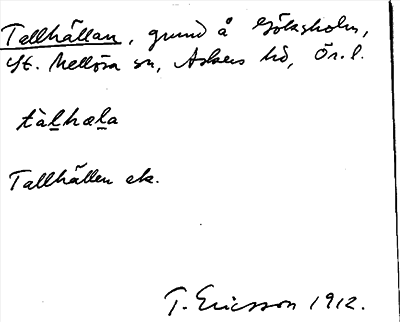 Tallhällan, grund å Göksholm,
St. Mellösa sn, Askers hd, Ör. l.
tàl̲hæl̲a
Tallhällen ek.
T. Ericsson 1912.